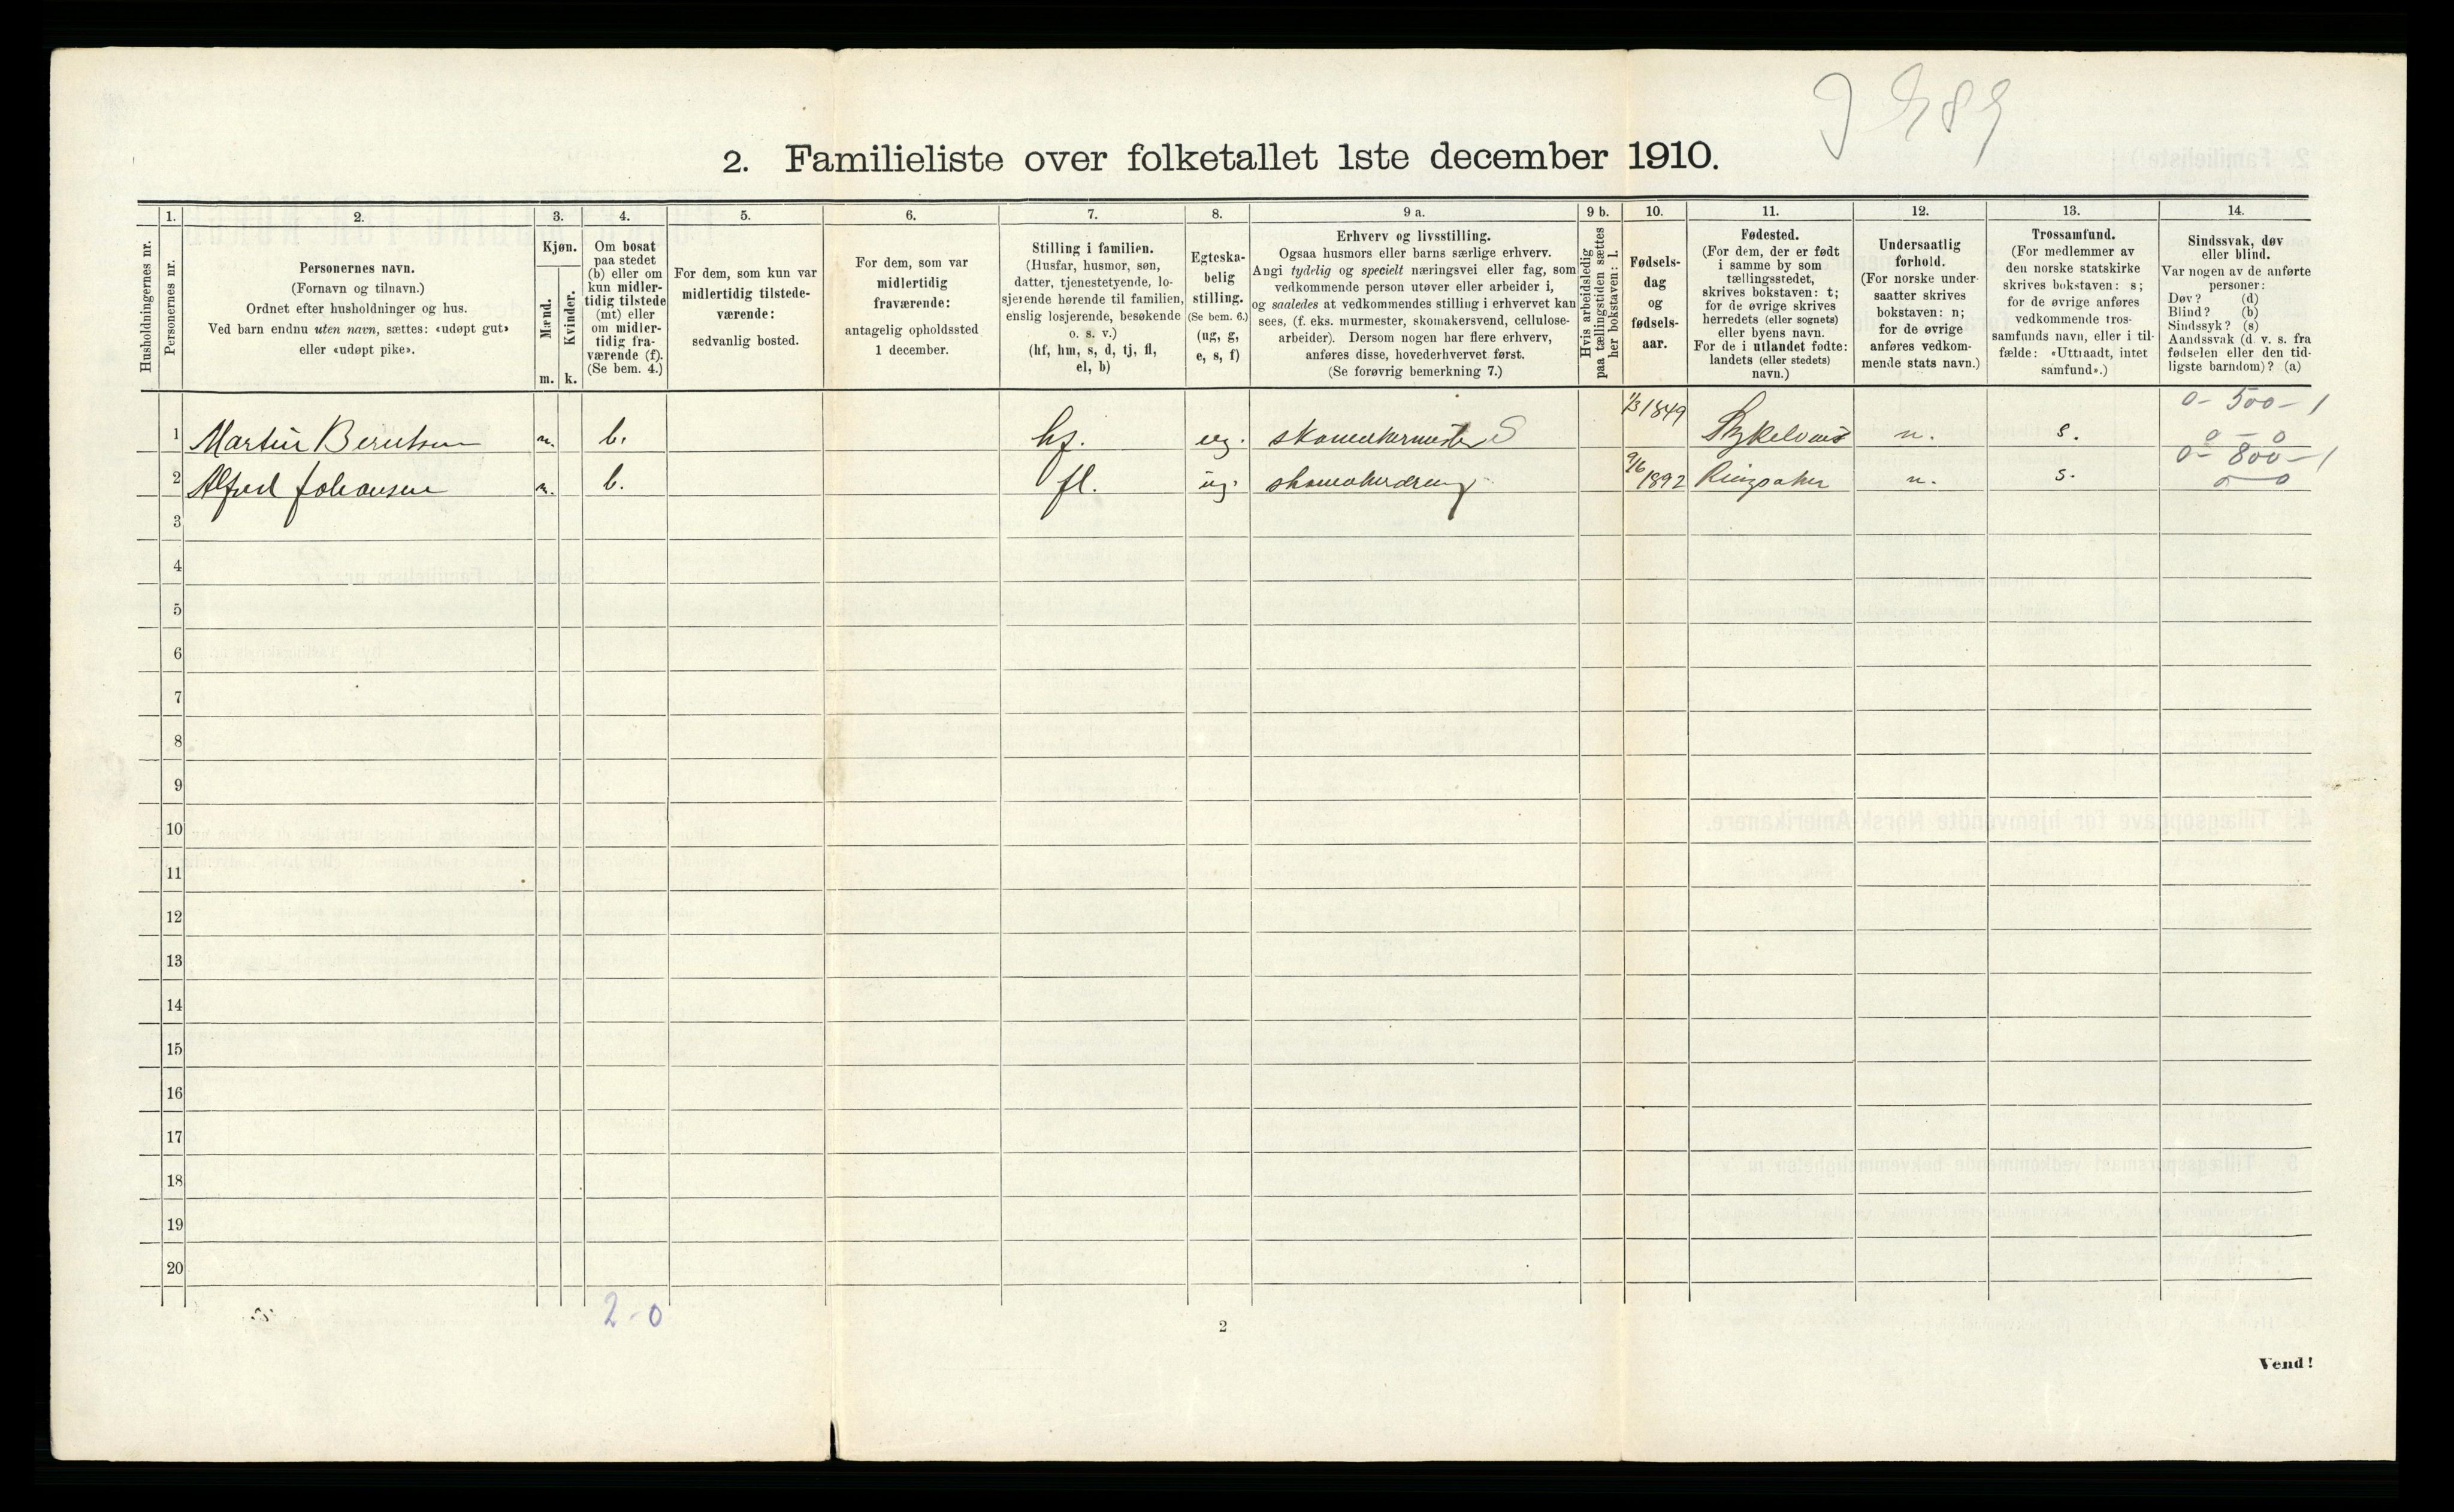 2. Familieliste over folketallet 1ste december 1910.
Husholdningernes nr.
1.
Personernes nr.
2.
Personernes navn.
(Fornavn og tilnavn.)
Ordnet efter husholdninger og hus.
Ved barn endnu uten navn, sættes: «udøpt gut»
eller «udøpt pike».
3.
Kjøn.
Mænd.
Kvinder.
m. k.
4.
Om bosat
paa stedet
(b) eller om
kun midler-
tidig tilstede
(mt) eller
om midler-
tidig fra-
værende (f).
(Se bem. 4.)
5.
For dem, som kun var
midlertidig tilstede-
værende:
sedvanlig bosted.
6.
For dem, som var
midlertidig
fraværende:
antagelig opholdssted
1 december.
7.
Stilling i familien.
(Husfar, husmor, søn,
datter, tjenestetyende, lo-
sjerende hørende til familien,
enslig losjerende, besøkende
o. s. v.)
(hf, hm, s, d, tj, fl,
el, b)
8.
Egteska-
belig
stilling.
(Se bem. 6.)
(ug, g,
e, s, f)
9 a.
Erhverv og livsstilling.
Ogsaa husmors eller barns særlige erhverv.
Angi tydelig og specielt næringsvei eller fag, som
vedkommende person utøver eller arbeider i,
og saaledes at vedkommendes stilling i erhvervet kan
sees, (f. eks. murmester, skomakersvend, cellulose-
arbeider). Dersom nogen har flere erhverv,
anføres disse, hovederhvervet først.
(Se forøvrig bemerkning 7.)
9 b.
Hvis arbeidsledig
paa tællingstiden sættes
her bokstaven: l.
10.
Fødsels-
dag
og
fødsels-
aar.
11.
Fødested.
(For dem, der er født
i samme by som
tællingsstedet,
skrives bokstaven: t;
for de øvrige skrives
herredets (eller sognets)
eller byens navn.
For de i utlandet fødte:
landets (eller stedets)
navn.)
12.
Undersaatlig
forhold.
(For norske under-
saatter skrives
bokstaven: n;
for de øvrige
anføres vedkom-
mende stats navn.)
13.
Trossamfund.
(For medlemmer av
den norske statskirke
skrives bokstaven: s;
for de øvrige anføres
vedkommende tros-
samfunds navn, eller i til-
fælde: «Uttraadt, intet
samfund».)
14.
Sindssvak, døv
eller blind.
Var nogen av de anførte
personer:
Døv? (d)
Blind? (b)
Sindssyk? (s)
Aandssvak (d. v. s. fra
fødselen eller den tid-
ligste barndom)? (a)
0 - 500 - 1
1 Martin Berntsen m. b. hf. ug. skomakermester S 1/3 1849 n. s. 0 - 0
0 - 800 - 1
2 Alfred Johansen m. b. fl. ug. skomakerdreng 9/6 1892 Ringsaker n. s. 0 0
3
4
5
6
7
8
9
10
11
12
13
14
15
16
17
18
19
20
2 - 0
2
Vend!